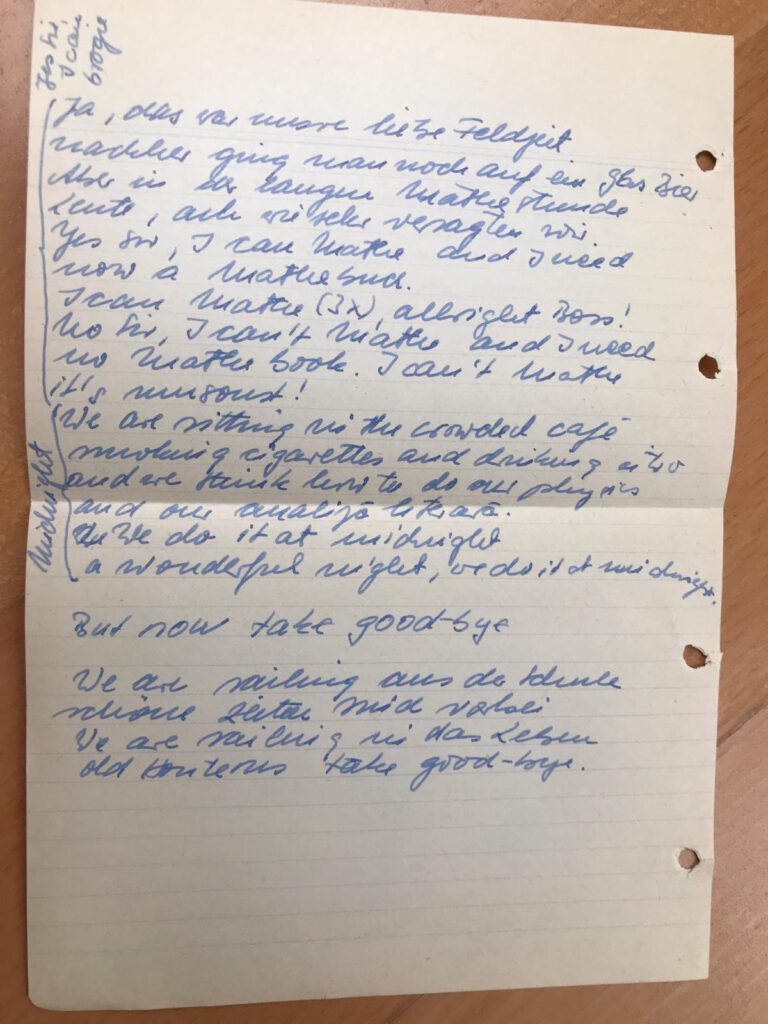 Yes Sir
I can
boogie
Ja, das war unsre liebe Feldzeit
nachher ging man noch auf ein glas Bier
Aber in der langen Mathestunde
Leute, ach wie sehr versagten wir
Yes Sir, I can Mathe and I need
now a Mathebuch.
I can Mathe (3x), allright Boss!
No Sir, I can't Mathe and I need
no Mathe book. I can't Mathe
it's umsonst!
Midnight
We are sitting in the crowded café
smoking cigarettes and drinking
and we think how to do our physics
and our analiză literară.
We do it at midnight
a wonderful night, we do it at midnight.
But now take good-bye
We are sailing aus der Schule
schöne Zeiten sind vorbei
We are sailing in das Leben
old take good-bye.